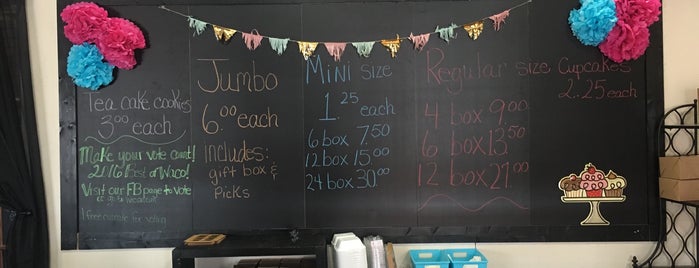 Tea cake cookies
3.00 each
Make your vote count!
2016 Best of Waco!
Visit our FB page to vote
1 free cupcake for voting
Jumbo
6.00 each
includes:
gift box &
picks
Mini size
1.25 each
6 box 7.50
12 box 15.00
24 box 30.00
Regular size Cupcakes
2.25 each
4 box 9.00
6 box 13.50
12 box 27.00